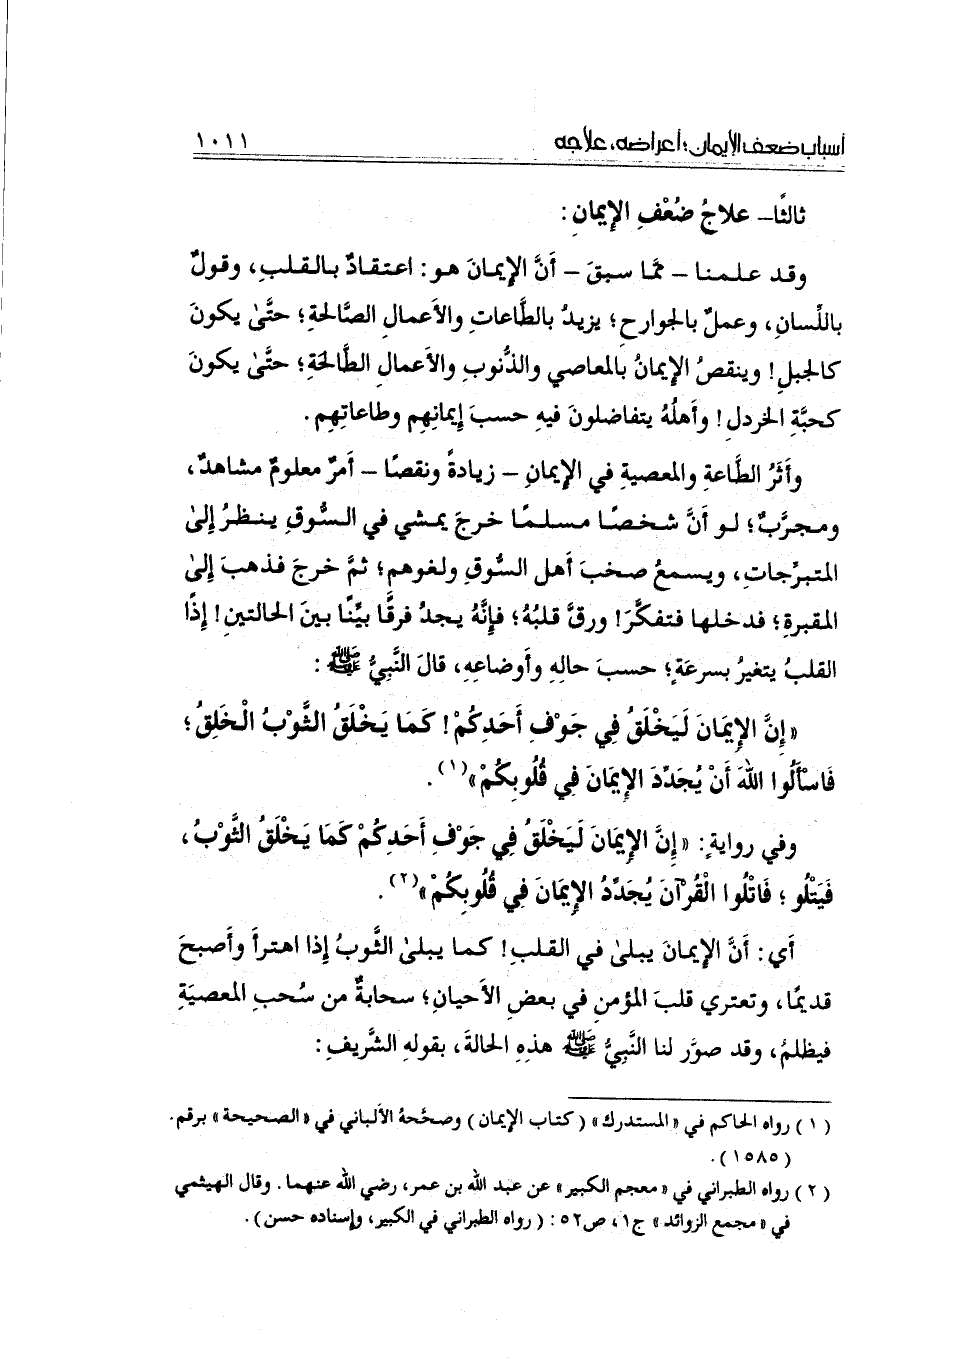 أسباب ضعف الإيمان؛ أعراضه، علاجه ١٠١١
ثالثًا- علاجُ ضُعْفِ الإيمانِ:
وقد علمنا - ممَّا سبقَ - أنَّ الإيمانَ هو: اعتقادٌ بالقلبِ، وقولٌ
باللِّسانِ، وعملٌ بالجوارحِ؛ يزيدُ بالطَّاعاتِ والأعمالِ الصَّالحةِ؛ حتَّىٰ يكونَ
كالجبلِ! وينقصُ الإيمانُ بالمعاصي والذُّنوبِ والأعمالِ الطَّالحَةِ؛ حتَّىٰ يكونَ
كحبَّةِ الخردلِ! وأهلُهُ يتفاضلونَ فيهِ حسبَ إيمانِهِم وطاعاتِهِم.
وأثَرُ الطَّاعةِ والمعصيةِ في الإيمانِ - زيادةً ونقصًا - أمرٌ معلومٌ مشاهدٌ،
ومجرَّبٌ؛ لو أنَّ شخصًا مسلمًا خرجَ يمشي في السُّوقِ ينظرُ إلىٰ
المتبرِّجاتِ، ويسمعُ صخبَ أهلِ السُّوقِ ولغوهم؛ ثمَّ خرجَ فذهبَ إلىٰ
المقبرةِ؛ فدخلها فتفكَّرَ! ورقَّ قلبُهُ؛ فإنَّهُ يجدُ فرقًا بيِّنًا بينَ الحالتينِ! إذًا
القلبُ يتغيرُ بسرعَةٍ؛ حسبَ حالِهِ وأوضاعِهِ، قالَ النَّبِيُّ ﷺ:
«إِنَّ الإِيمَانَ لَيَخْلَقُ فِي جَوْفِ أَحَدِكُمْ! كَمَا يَخْلَقُ الثَّوْبُ الْخَلِقُ؛
فَاسْأَلُوا اللهَ أَنْ يُجَدِّدَ الإِيمَانَ فِي قُلُوبِكُمْ»(١).
وفي روايةٍ: «إِنَّ الإِيمَانَ لَيَخْلَقُ فِي جَوْفِ أَحَدِكُمْ كَمَا يَخْلَقُ الثَّوْبُ،
فَيَتْلُو؛ فَاتْلُوا الْقُرْآنَ يُجَدَّدُ الإِيمَانَ فِي قُلُوبِكُمْ»(٢).
أي: أنَّ الإيمَانَ يبلىٰ في القلبِ! كما يبلىٰ الثَّوبُ إذا اهترأ وأصبحَ
قديمًا، وتعتري قلبَ المؤمنِ في بعضِ الأحيانِ؛ سحابةٌ من سُحبِ المعصيَةِ
فيظلمُ، وقد صوَّر لنا النَّبِيُّ ﷺ هذهِ الحالةَ، بقولِهِ الشَّريفِ:
(١) رواه الحاكم في «المستدرك» (كتاب الإيمان) وصحَّحهُ الألباني في «الصحيحة» برقم.
(١٥٨٥).
(٢) رواه الطبراني في «معجم الكبير» عن عبد الله بن عمر، رضي الله عنهما. وقال الهيثمي
في «مجمع الزوائد» ج١، ص٥٢: (رواه الطبراني في الكبير، وإسناده حسن).